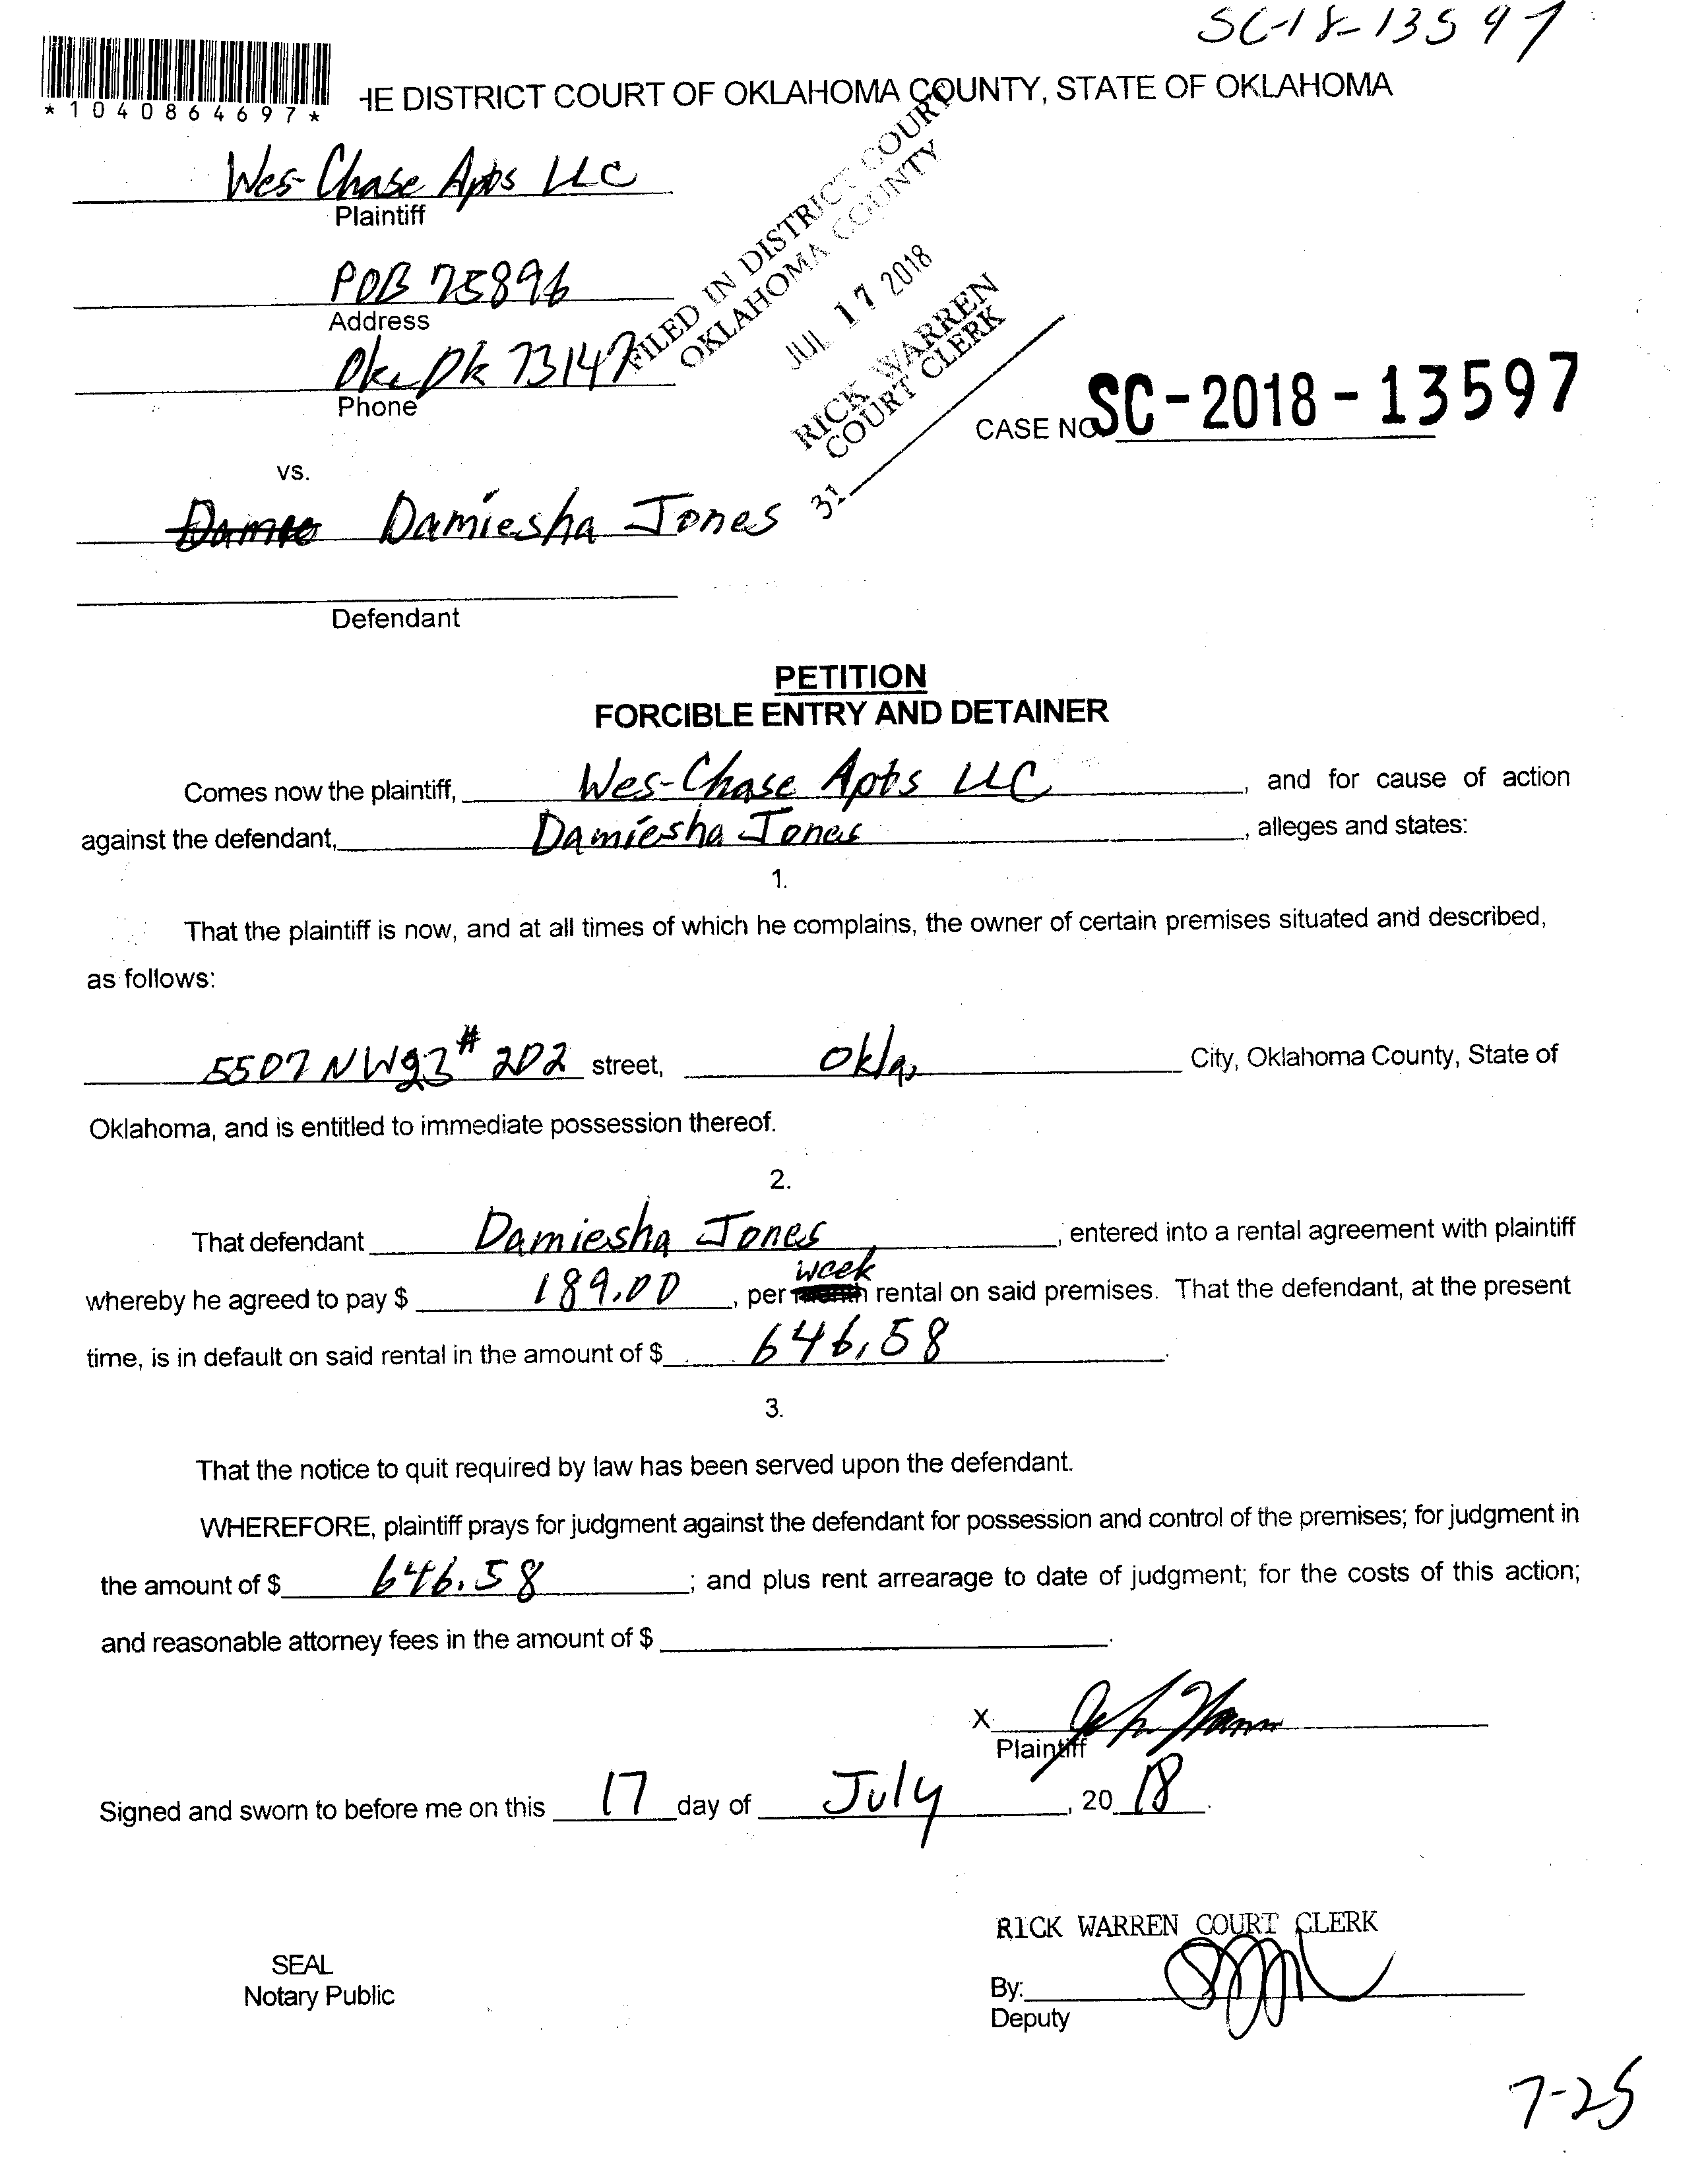 SC-18-13597
*1040864697*
HE DISTRICT COURT OF OKLAHOMA COUNTY, STATE OF OKLAHOMA
Wes-Chase Apts LLC
Plaintiff
POB 75896
Address
Okc Ok 73147
Phone
FILED IN DISTRICT COURT
OKLAHOMA COUNTY
JUL 17 2018
RICK WARREN
COURT CLERK
31
CASE NO. SC-2018-13597
vs.
Damiesha Jones
Defendant
PETITION
FORCIBLE ENTRY AND DETAINER
Comes now the plaintiff, Wes-Chase Apts LLC, and for cause of action
against the defendant, Damiesha Jones, alleges and states:
1.
That the plaintiff is now, and at all times of which he complains, the owner of certain premises situated and described,
as follows:
5507 NW23 # 202 street, Okla, City, Oklahoma County, State of
Oklahoma, and is entitled to immediate possession thereof.
2.
That defendant Damiesha Jones, entered into a rental agreement with plaintiff
whereby he agreed to pay $ 189.00, per month week rental on said premises. That the defendant, at the present
time, is in default on said rental in the amount of $ 646.58.
3.
That the notice to quit required by law has been served upon the defendant.
WHEREFORE, plaintiff prays for judgment against the defendant for possession and control of the premises; for judgment in
the amount of $ 646.58; and plus rent arrearage to date of judgment; for the costs of this action;
and reasonable attorney fees in the amount of $ .
X
Plaintiff
Signed and sworn to before me on this 17 day of July, 20 18.
RICK WARREN COURT CLERK
SEAL
Notary Public
By:
Deputy
7-25